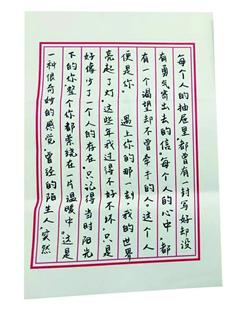 每个人的抽屉里都曾有一封写好却没
有勇气寄出去的信,每个人的心中,都
有一个渴望却不曾牵手的人。这个人
便是你。 遇上你的那一刻,我的世界
亮起了灯,这些年我过得不好不坏,只是
好像少了一个人的存在,只记得当时阳光
下的你,整个你都萦绕在一片温暖中,这是
一种很奇妙的感觉,曾经的陌生人,突然